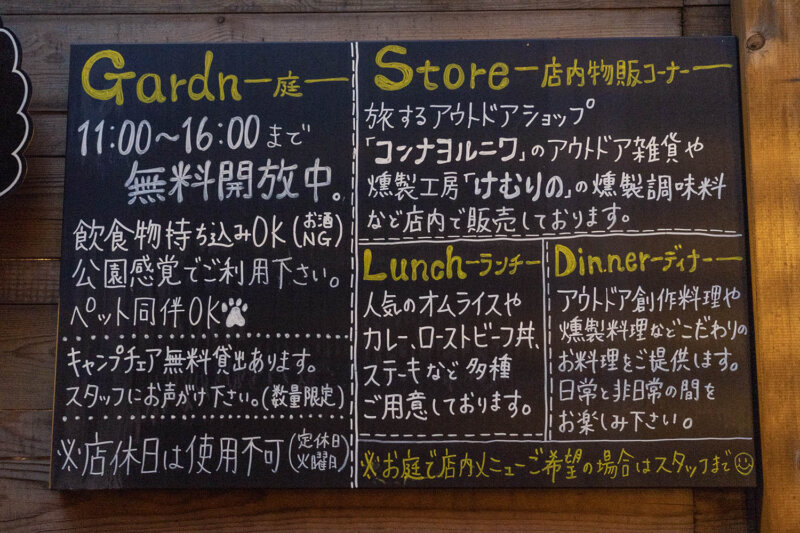 Gardn ー庭ー
11:00〜16:00 まで
無料開放中。
飲食物持ち込みOK(お酒NG)
公園感覚でご利用下さい。
ペット同伴OK
キャンプチェア無料貸出あります。
スタッフにお声がけ下さい。(数量限定)
※店休日は使用不可(定休日火曜月)
Store ー店内物販コーナーー
旅するアウトドアショップ
「コンナヨルニワ」のアウトドア雑貨や
燻製工房「けむりの」の燻製調味料
など店内で販売しております。
Lunch ーランチー
人気のオムライスや
カレー、ローストビーフ丼、
ステーキなど多種
ご用意しております。
Dinner ーディナーー
アウトドア創作料理や
燻製料理などこだわりの
お料理をご提供します。
日常と非日常の間を
お楽しみ下さい。
※お庭で店内メニューご希望の場合はスタッフまで